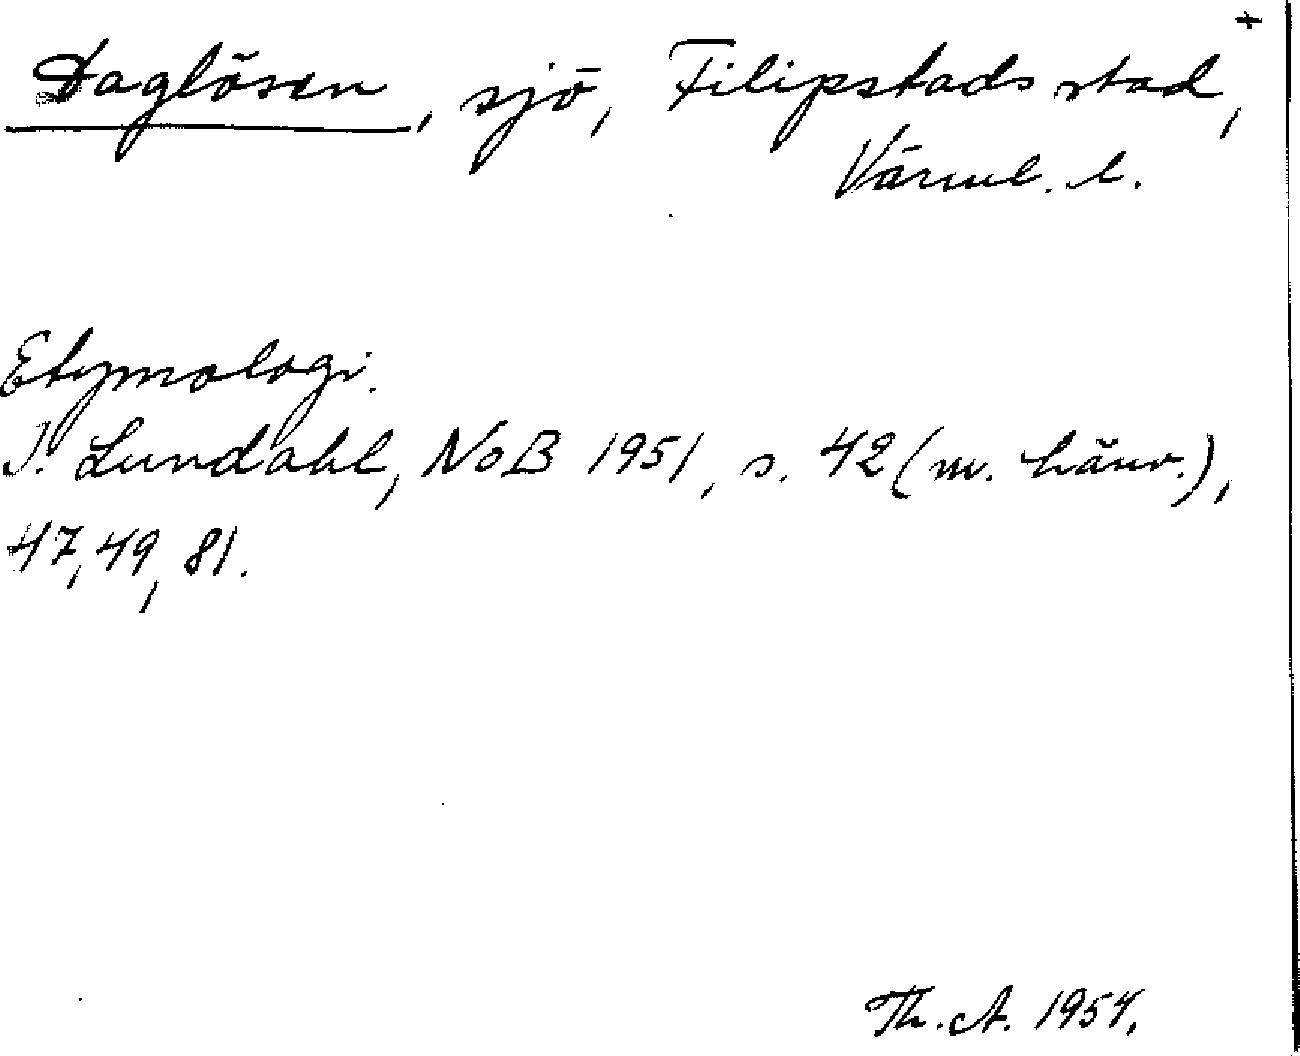 +
Daglösen, sjö, Filipstads stad,
Värml. l.
Etymologi.
I. Lundahl, NoB 1951, s. 42 (m. hänv.),
47, 49, 81.
Th. A. 1954.